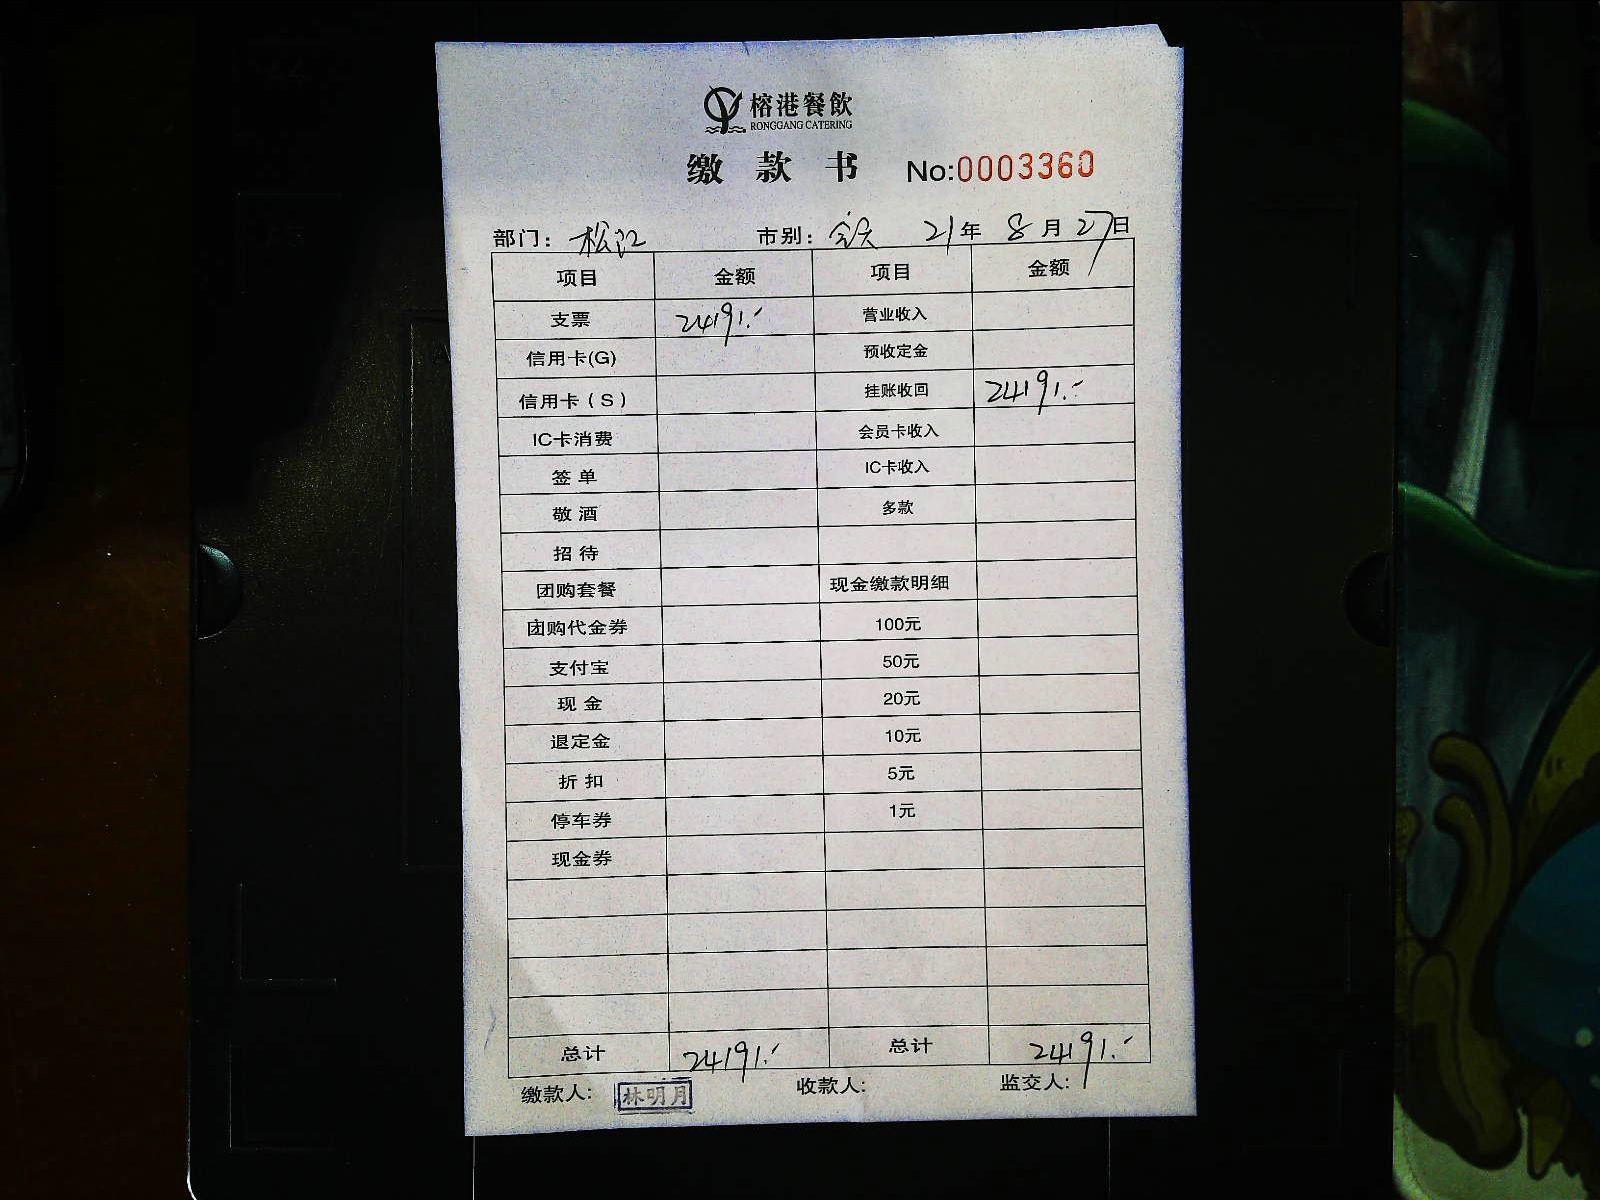 榕港餐飲
RONGGANG CATERING
缴 款 书 No:0003360
部门：松江 市别：全天 21年 8月 27日
项目 金额 项目 金额
支票 24191.- 营业收入
信用卡(G) 预收定金
信用卡（S） 挂账收回 24191.-
IC卡消费 会员卡收入
签 单 IC卡收入
敬 酒 多款
招 待
团购套餐 现金缴款明细
团购代金券 100元
支付宝 50元
现 金 20元
退定金 10元
折 扣 5元
停车券 1元
现金券
总计 24191.- 总计 24191.-
缴款人: 林明月 收款人: 监交人: